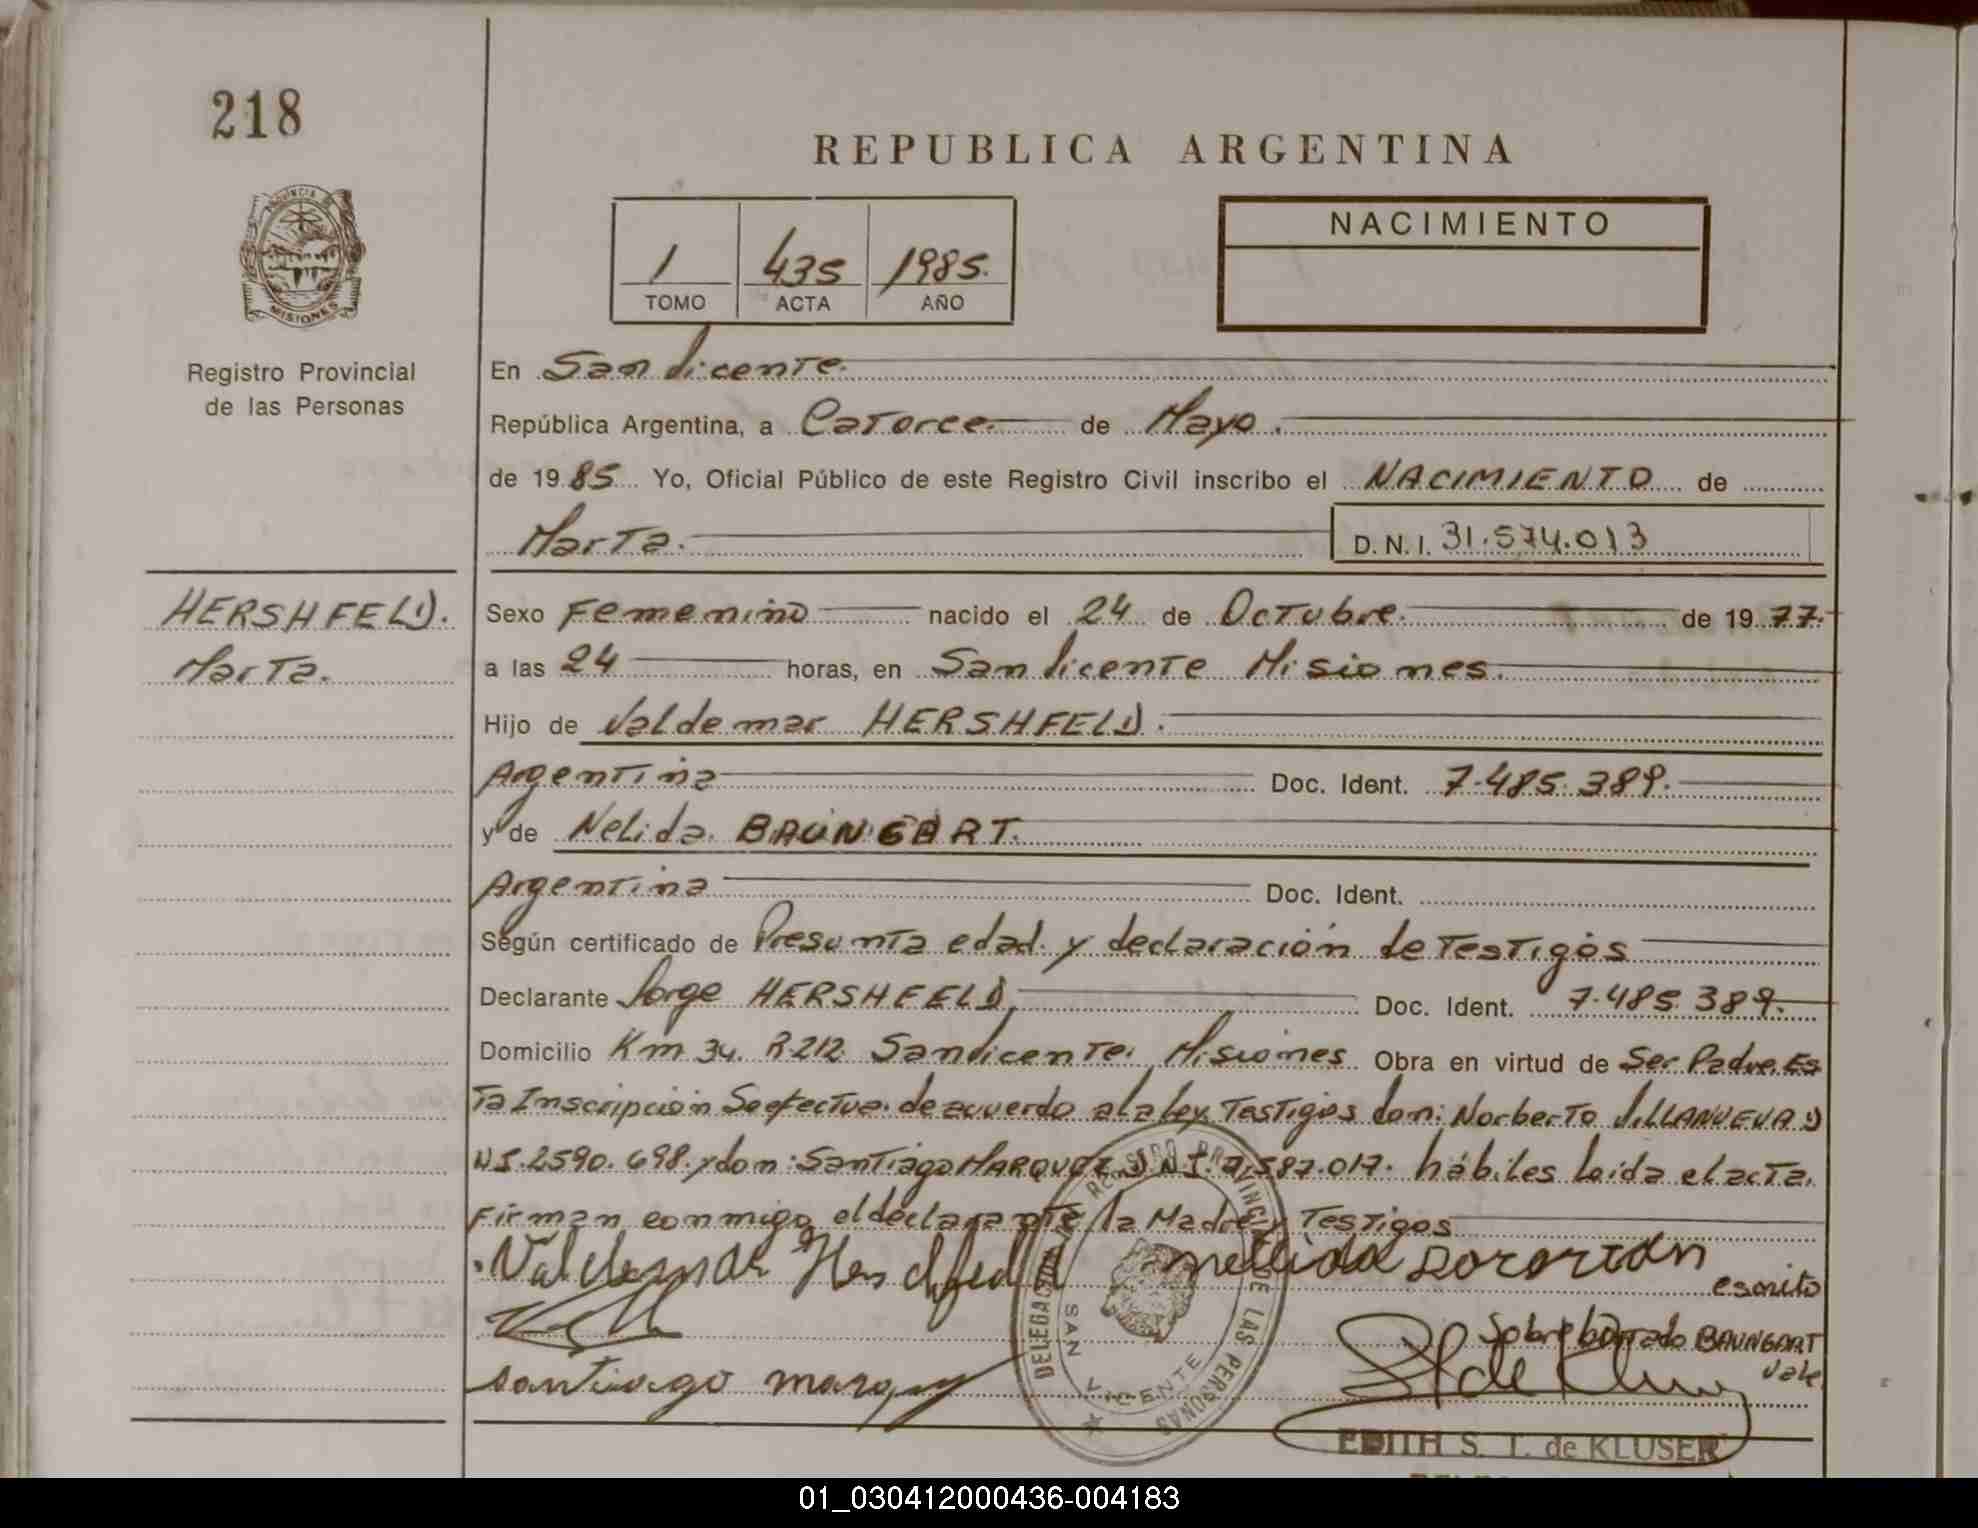 218
REPUBLICA ARGENTINA
PROVINCIA DE
MISIONES
1 435 1985.
TOMO ACTA AÑO
NACIMIENTO
Registro Provincial
de las Personas
En San Vicente.
República Argentina, a Catorce. de Mayo.
de 1985 Yo, Oficial Público de este Registro Civil inscribo el NACIMIENTO de
Marta. D. N. I. 31.574.013
HERSHFELD.
Marta.
Sexo Femenino nacido el 24 de Octubre. de 1977.
a las 24 horas, en San Vicente Misiones.
Hijo de Valdemar HERSHFELD.
Argentina Doc. Ident. 7.485.389.
y de Nelida. BAUNGART.
Argentina Doc. Ident.
Según certificado de Presunta edad. y declaración de Testigos
Declarante Jorge HERSHFELD, Doc. Ident. 7.485.389.
Domicilio Km 34. R.212 San Vicente. Misiones Obra en virtud de Ser Padre. Es
Ta Inscripción Se efectua. de acuerdo a la ley. Testigos don: Norberto VILLANUEVA D
NI. 2590.698. y don: Santiago MARQUEZ D.N.I. 7.587.017. hábiles Leida el acta.
Firman conmigo el declarante la Madre y Testigos
Valdemar Herschfeld Nellida
escrito
Sobre borrado BAUNGART
Vale
santiago marquez
DELEGACION REGISTRO PROVINCIAL DE LAS PERSONAS
SAN VICENTE
EDITH S. T. de KLUSER
01_030412000436-004183